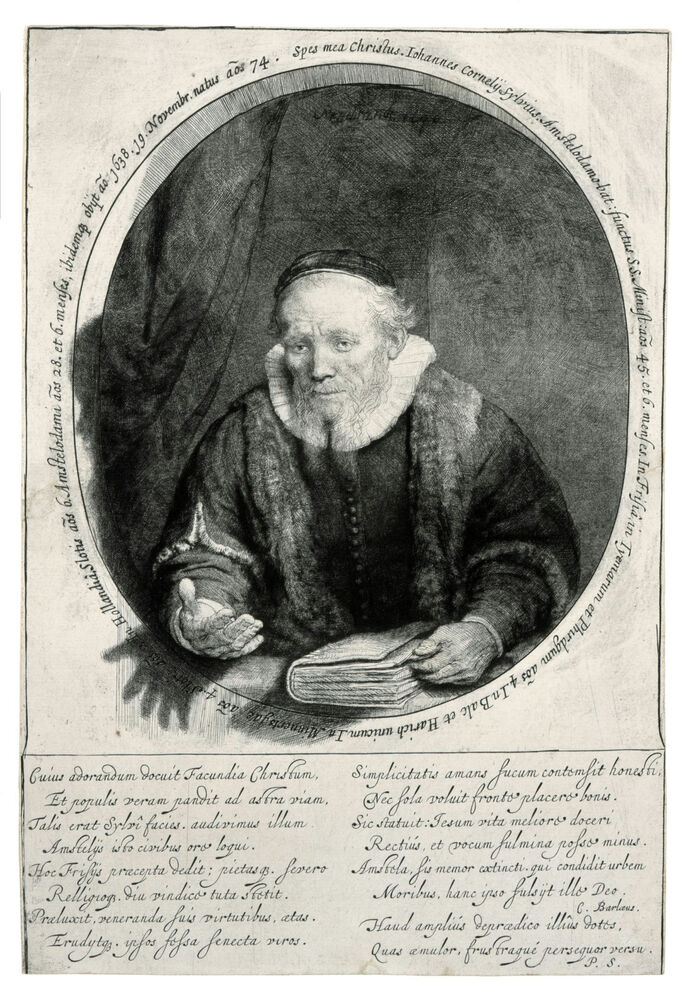 Spes mea Christus. Iohannes Cornelij Sylvius, Amstelodamo-bat: functus S.S. Minist: aōs 45. et 6. menses. In Frisiâ in Tyemarum et Phirdgum aōs 4. In Balc et Harich unicum. In Minnertsgae aōs 4. Slotis aō In Hollandiâ, Slotis aōs 6. Amstelodami aōs 28. et 6. menses, ibidemq obijt aō 1638. 19. Novembr. natus aōs 74.
Rembrandt
Cuius adorandum docuit Facundia Christum,
Et populis veram pandit ad astra viam,
Talis erat Sylvi facies. audivimus illum
Amstelijs isto civibus ore loqui.
Hoc Frisijs præcepta dedit; pietasq. severo
Relligioq. diu vindice tuta stetit.
Præluxit, veneranda suis virtutibus, ætas.
Erudytq. ipsos fessa senecta viros.
Simplicitatis amans fucum contemsit honesti,
Nec sola voluit fronte placere bonis.
Sic statuit: Iesum vita meliore doceri
Rectiùs, et vocum fulmina posse minus.
Amstela, sis memor extincti. qui condidit urbem
Moribus, hanc ipso fulsijt ille Deo.
C. Barleus.
Haud ampliùs deprædico illîus dotes,
Quas æmulor, frustraque persequor versu.
P. S.